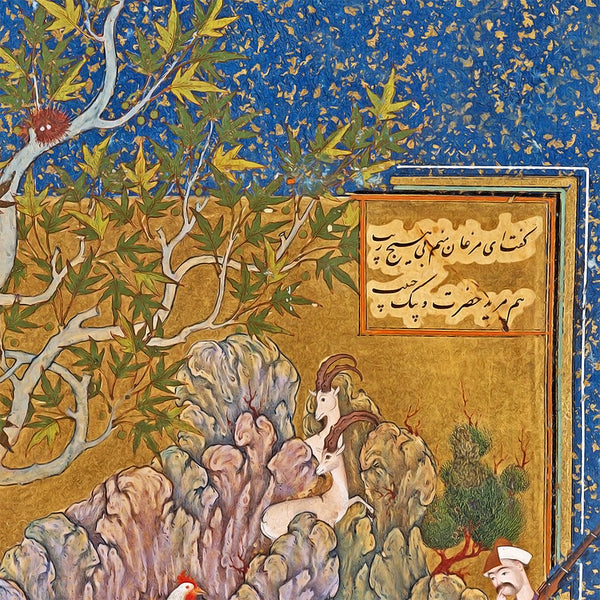 گفت ای مرغان منم بی هیچ ریب
هم مرید حضرت و پیک غیب